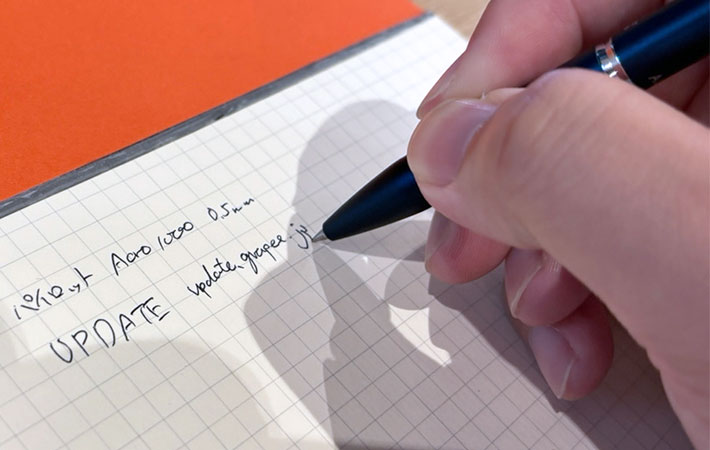 パイロット Acro 1000 0.5mm
UPDATE update.grapee.jp